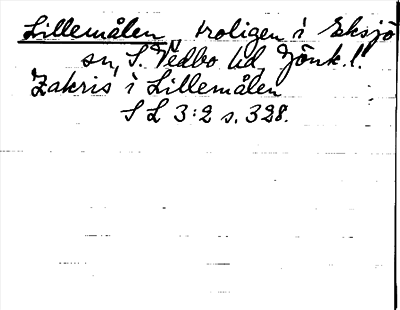 Lillemålen troligen i Eksjö
sn, S. Vedbo hd, Jönk. l.
Zakris i Lillemålen
S L 3:2 s. 328.